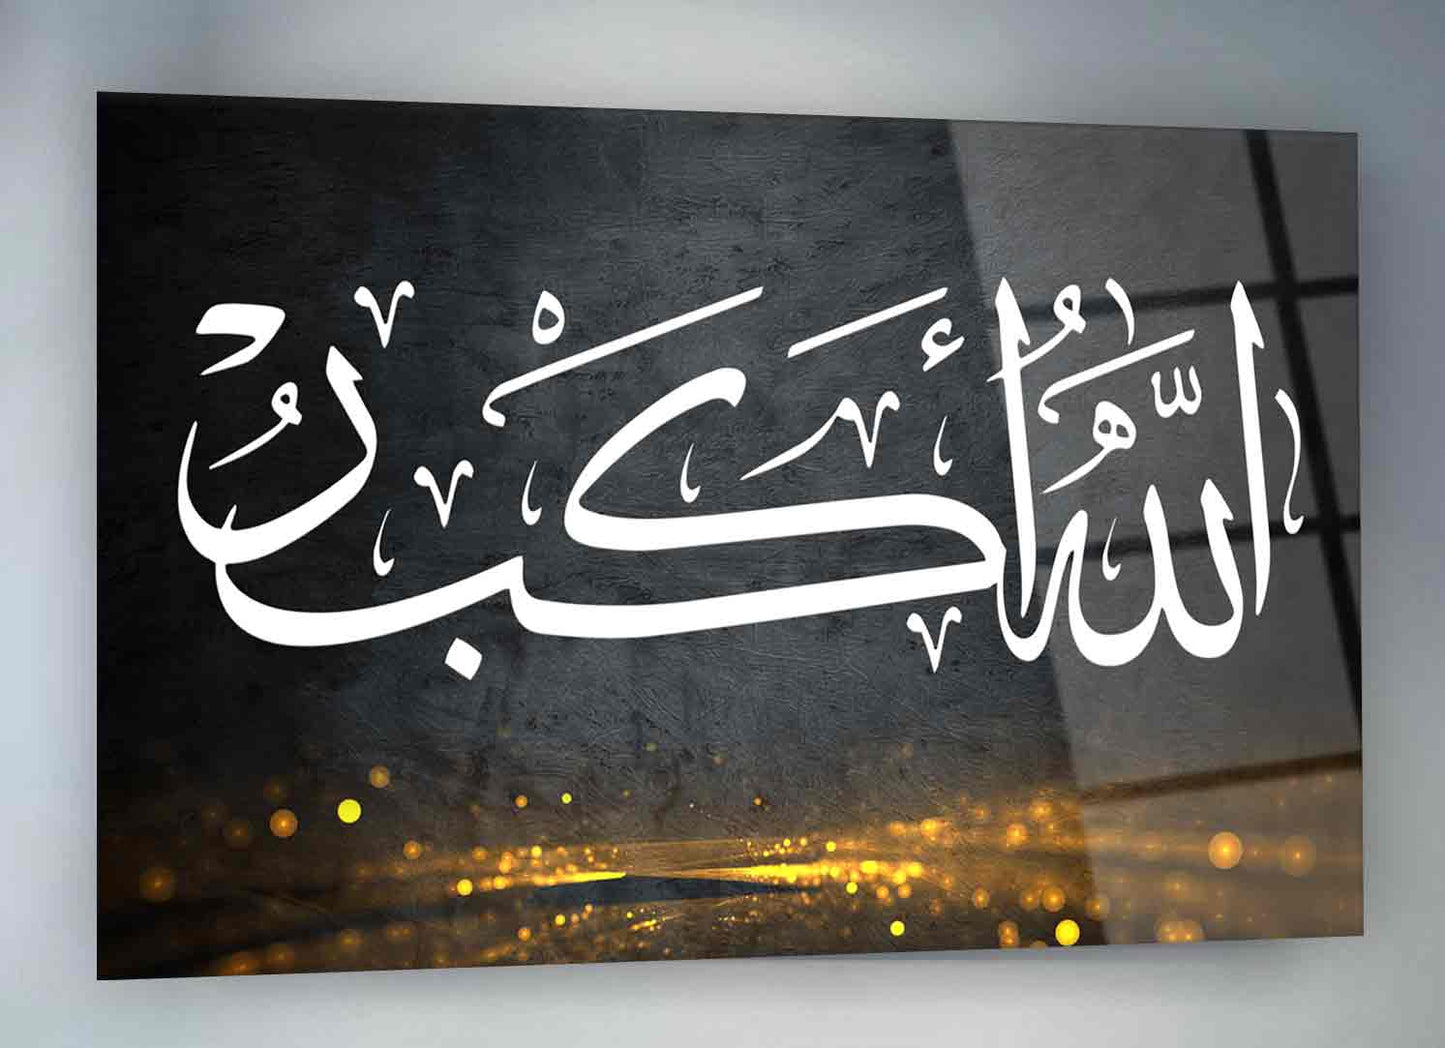 اللَّهُ أَكْبَرُ